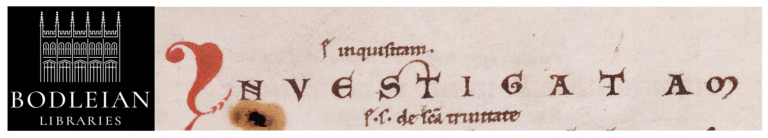 BODLEIAN
LIBRARIES
ſ inquisitam.
INVESTIGATAM
ſ.ſ. de sc̄a trinitate